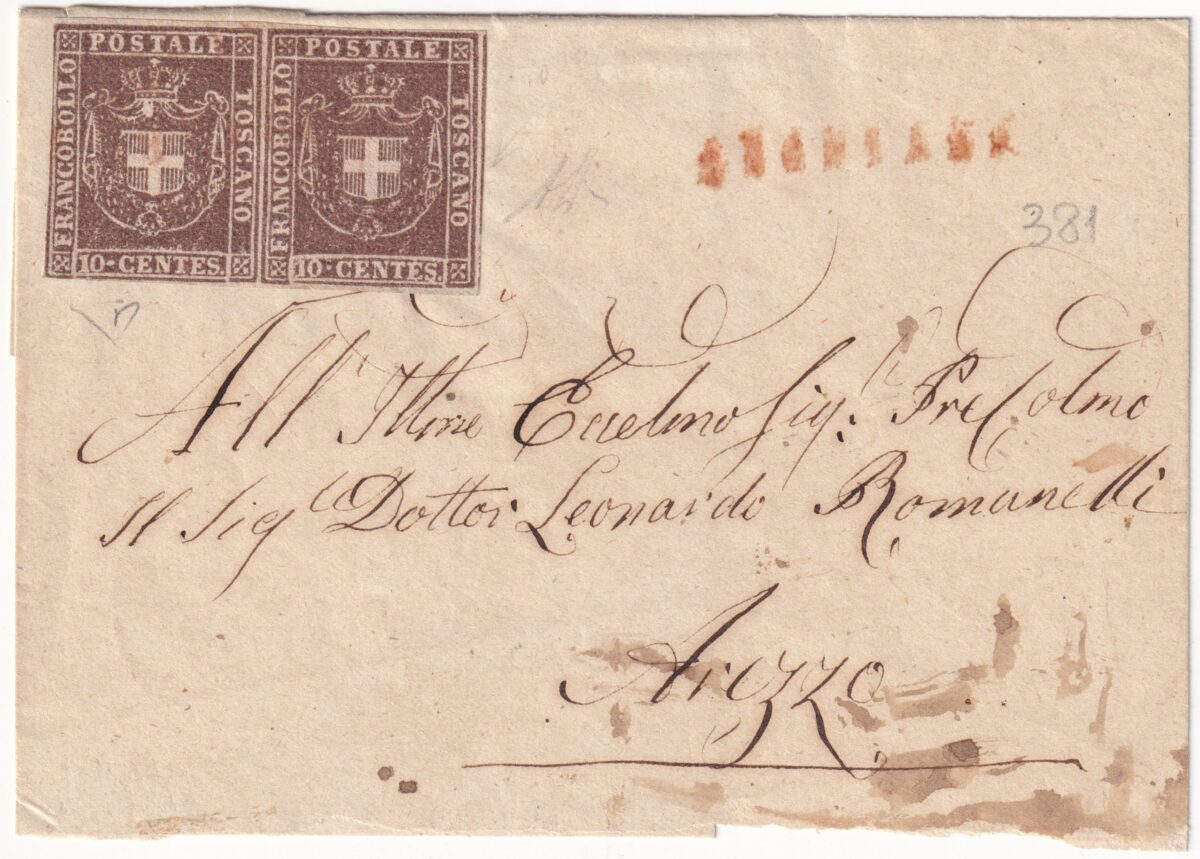 FRANCOBOLLO POSTALE TOSCANO 10 CENTES.
FRANCOBOLLO POSTALE TOSCANO 10 CENTES.
381
All' Illmo Eccelmo Sig.r Pre Colmo
Il Sig Dottor Leonardo Romanelli
Arezzo